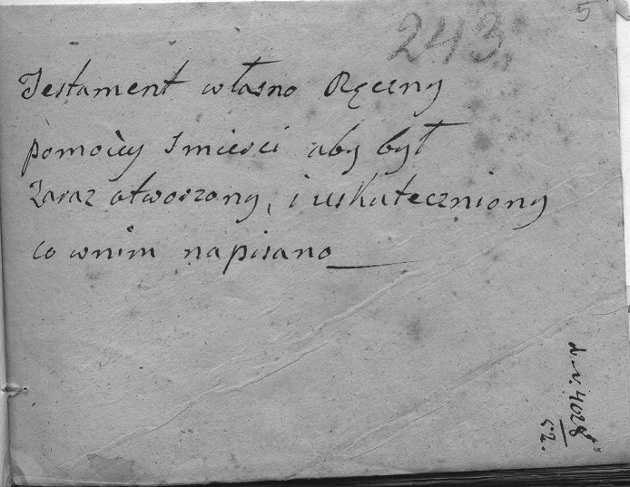 243.
5
Testament własno Ręczny
pomoiey Smierci aby był
Zaraz otworzony, i uskuteczniony
co wnim napisano
d. N. 4028
52.